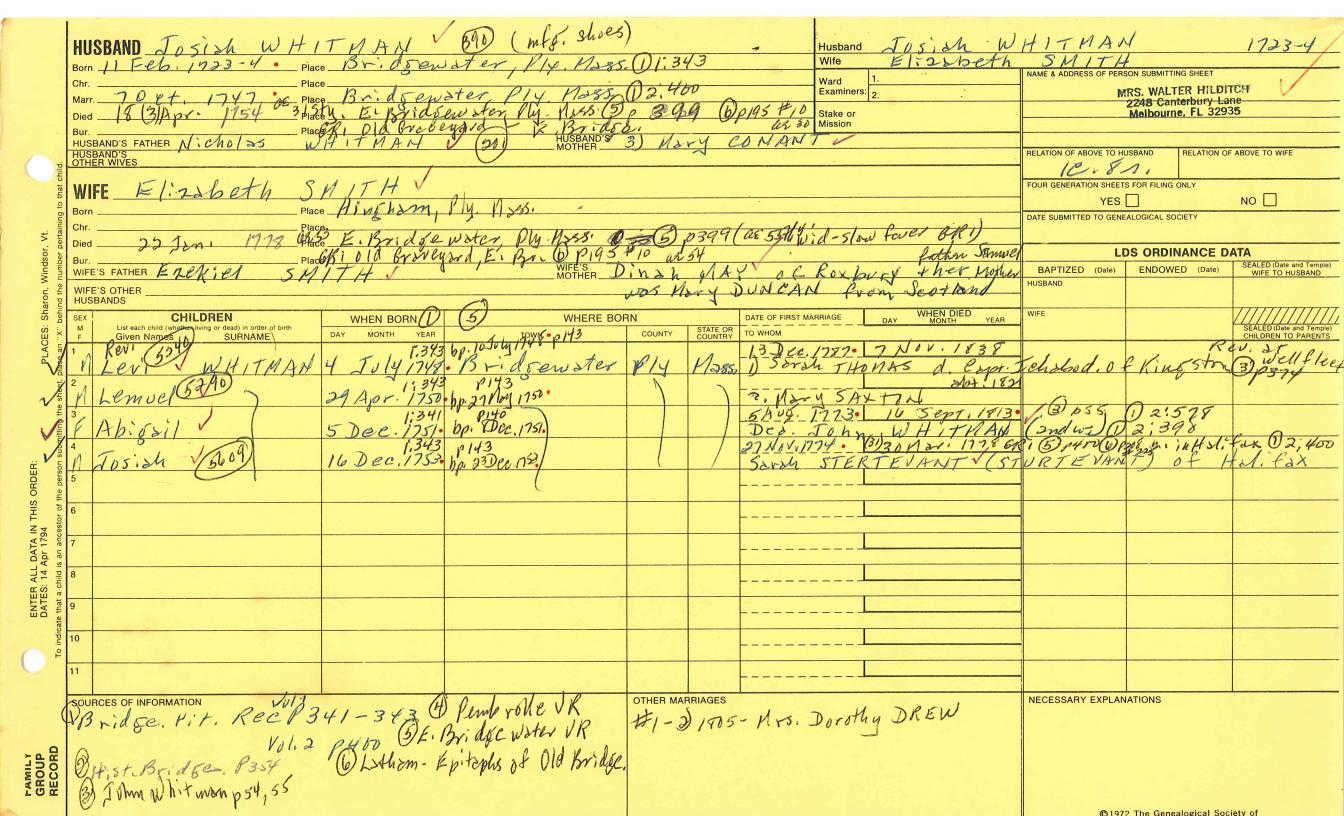 HUSBAND Josiah WHITMAN 390 (mfg. shoes)
Born 11 Feb. 1723-4 Place Bridgewater, Ply. Mass. ① 1:343
Chr. Place
Marr. 7 Oct. 1747 Place Bridgewater Ply Mass. ① 2:400
Died 18 (3) Apr. 1754 Place E. Bridgewater, Ply. Mass. ⑤ p 399 ⑥ p195 #10
Bur. Place GRI Old Graveyard E. Bridge. ae 30
HUSBAND'S FATHER Nicholas WHITMAN HUSBAND'S MOTHER 3) Mary CONANT
HUSBAND'S OTHER WIVES
WIFE Elizabeth SMITH
Born Place Hingham, Ply. Mass.
Chr. Place
Died 22 Jan. 1778 Place E. Bridgewater, Ply. Mass. ⑤ p399 wid-slow fever GRI)
Bur. Place GRI Old Graveyard, E. Br. ⑥ p195 #10 ae 54 father Samuel
WIFE'S FATHER Ezekiel SMITH WIFE'S MOTHER Dinah MAY of Roxbury & her Mother
WIFE'S OTHER HUSBANDS was Mary DUNCAN from Scotland
Husband Josiah WHITMAN 1723-4
Wife Elizabeth SMITH
Ward Examiners: 1.
2.
Stake or Mission
NAME & ADDRESS OF PERSON SUBMITTING SHEET
MRS. WALTER HILDITCH
2248 Canterbury Lane
Melbourne, FL 32935
RELATION OF ABOVE TO HUSBAND RELATION OF ABOVE TO WIFE
FOUR GENERATION SHEETS FOR FILING ONLY
YES NO
DATE SUBMITTED TO GENEALOGICAL SOCIETY
LDS ORDINANCE DATA
BAPTIZED (Date) ENDOWED (Date) SEALED (Date and Temple) WIFE TO HUSBAND
HUSBAND
WIFE
SEALED (Date and Temple) CHILDREN TO PARENTS
SEX M F CHILDREN WHEN BORN ① ⑤ WHERE BORN DATE OF FIRST MARRIAGE WHEN DIED
List each child (whether living or dead) in order of birth
Given Names SURNAME DAY MONTH YEAR TOWN COUNTY STATE OR COUNTRY TO WHOM DAY MONTH YEAR
1 Rev. 1:343 bp. 10 July 1748 p143 13 Dec. 1787 7 Nov. 1838 Rev. at Wellfleet
M Levi WHITMAN 4 July 1748 Bridgewater Ply Mass. 1) Sarah THOMAS d. Capt. Ichabod of Kingston ③ p374
2 5290 1:343 p143
M Lemuel 29 Apr. 1750 bp. 27 May 1750 2. Mary SAXTIN
3 1:341 p140 5 Aug. 1773 16 Sept. 1813 ③ p55 ① 2:578
F Abigail 5 Dec. 1751 bp. 8 Dec. 1751 Dea. John WHITMAN (2nd w) ① 2:398
4 1:343 p143 27 Nov. 1774 (31) 30 Mar. 1778 GRI ⑤ p400 ⑥ in Halifax ① 2:400
M Josiah 5609 16 Dec. 1753 bp. 23 Dec. 1753 Sarah STERTEVANT (STURTEVANT) of Halifax
5
6
7
8
9
10
11
SOURCES OF INFORMATION
① Bridge. Vit. Rec Vol 1 P341-343 ④ Pembroke VR
Vol. 2 P400 ⑤ E. Bridgewater VR
② Hist. Bridge. P354 ⑥ Latham- Epitaphs of Old Bridge.
③ John Whitman p54, 55
OTHER MARRIAGES
#1-2) 1805- Mrs. Dorothy DREW
NECESSARY EXPLANATIONS
©1972 The Genealogical Society of
ENTER ALL DATA IN THIS ORDER:
DATES: 14 Apr 1794
PLACES: Sharon, Windsor, Vt.
To indicate that a child is an ancestor of the person submitting the sheet, place an "X" behind the number pertaining to that child.
FAMILY GROUP RECORD